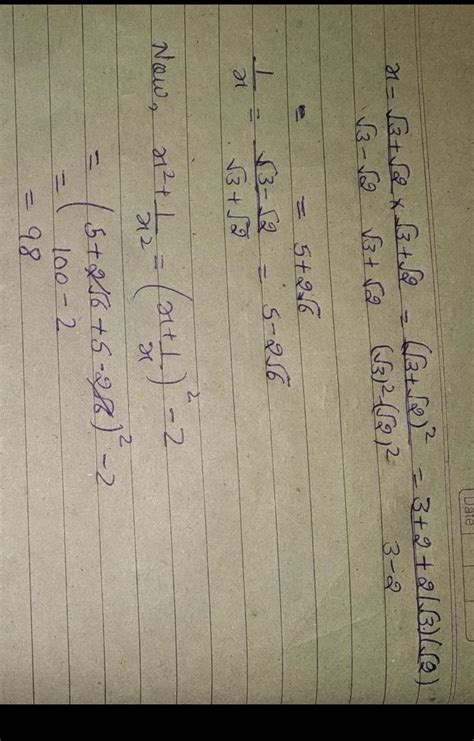 Date
x = √3+√2/√3-√2 × √3+√2/√3+√2 = (√3+√2)²/(√3)²-(√2)² = 3+2+2(√3)(√2)/3-2
= = 5+2√6
1/x = √3-√2/√3+√2 = 5-2√6
Now, x²+1/x² = (x+1/x)² -2
= (5+2√6+5-2√6)² -2
= 100-2
= 98